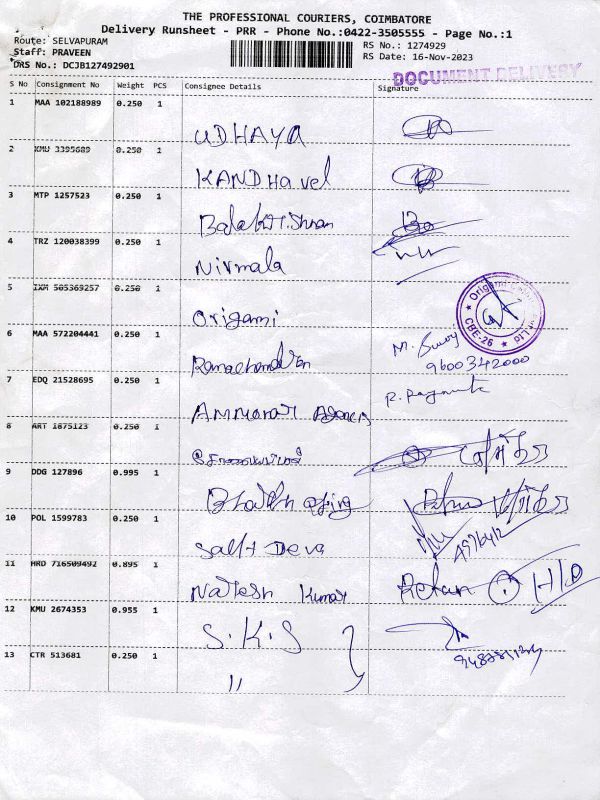 THE PROFESSIONAL COURIERS, COIMBATORE
Delivery Runsheet - PRR - Phone No.:0422-3505555 - Page No.:1
Route: SELVAPURAM
Staff: PRAVEEN
DRS No.: DCJB127492901
RS No.: 1274929
RS Date: 16-Nov-2023
DOCUMENT DELIVERY
S No Consignment No Weight PCS Consignee Details Signature
1 MAA 102188989 0.250 1
UDHAYA
2 KMU 3395689 0.250 1
KANDHavel
3 MTP 1257523 0.250 1
Balakrishnan
4 TRZ 120038399 0.250 1
Nirmala
5 IXM 505369257 0.250 1
Origami
CBE-26
6 MAA 572204441 0.250 1
Ramachandran
9600342000
7 EDQ 21528695 0.250 1
Ammanar Agency
8 ART 1875123 0.250 1
9 DDG 127896 0.995 1
10 POL 1599783 0.250 1
Sakti Deva
11 HRD 716509492 0.895 1
Natesh Kumar
H/O
12 KMU 2674353 0.955 1
S.K.S
13 CTR 513681 0.250 1
"